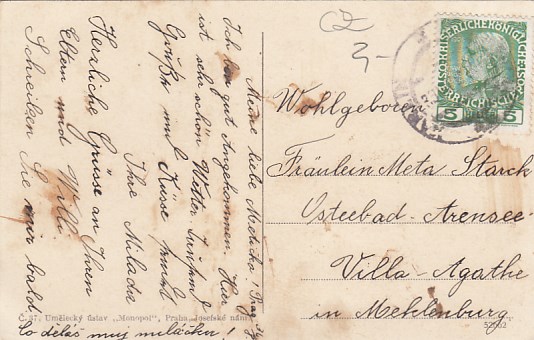 Meine liebe Metischa
Prag
Ich bin gut angekommen. Hier
ist sehr schön Wetter.
Grüße und Küsse
Ihre Milada
Herzliche Grüsse an Ihren
Eltern und Willi
Schreiben Sie mir bald
Co děláš muj miláčku!
Č. 37. Umělecký ústav „Monopol", Praha, Josefské nám.
3-
KAISERLICHE KÖNIGLICHE
5 HELLER 5
Wohlgeboren
Fräulein Meta Starck
Osteebad-Arensee
Villa-Agathe
in Meklenburg